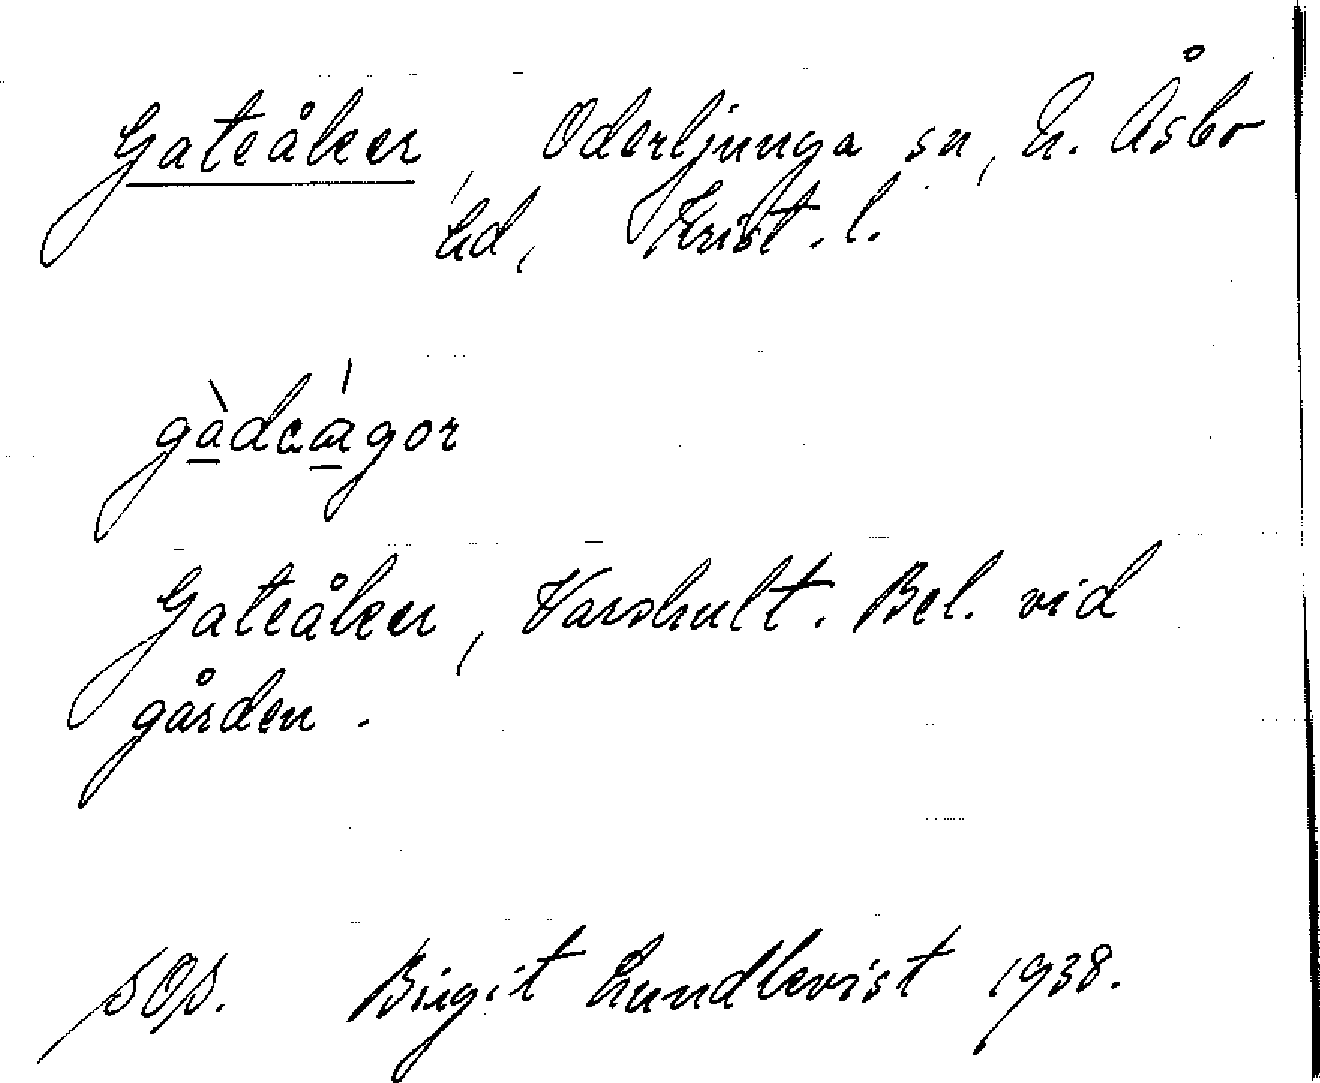 Gateåker, Oderljunga sn, N. Åsbo
hd, Krist. l.
gàdeágor
Gateåker, Varshult. Bel. vid
gården.
SOS. Birgit Lundkvist 1938.